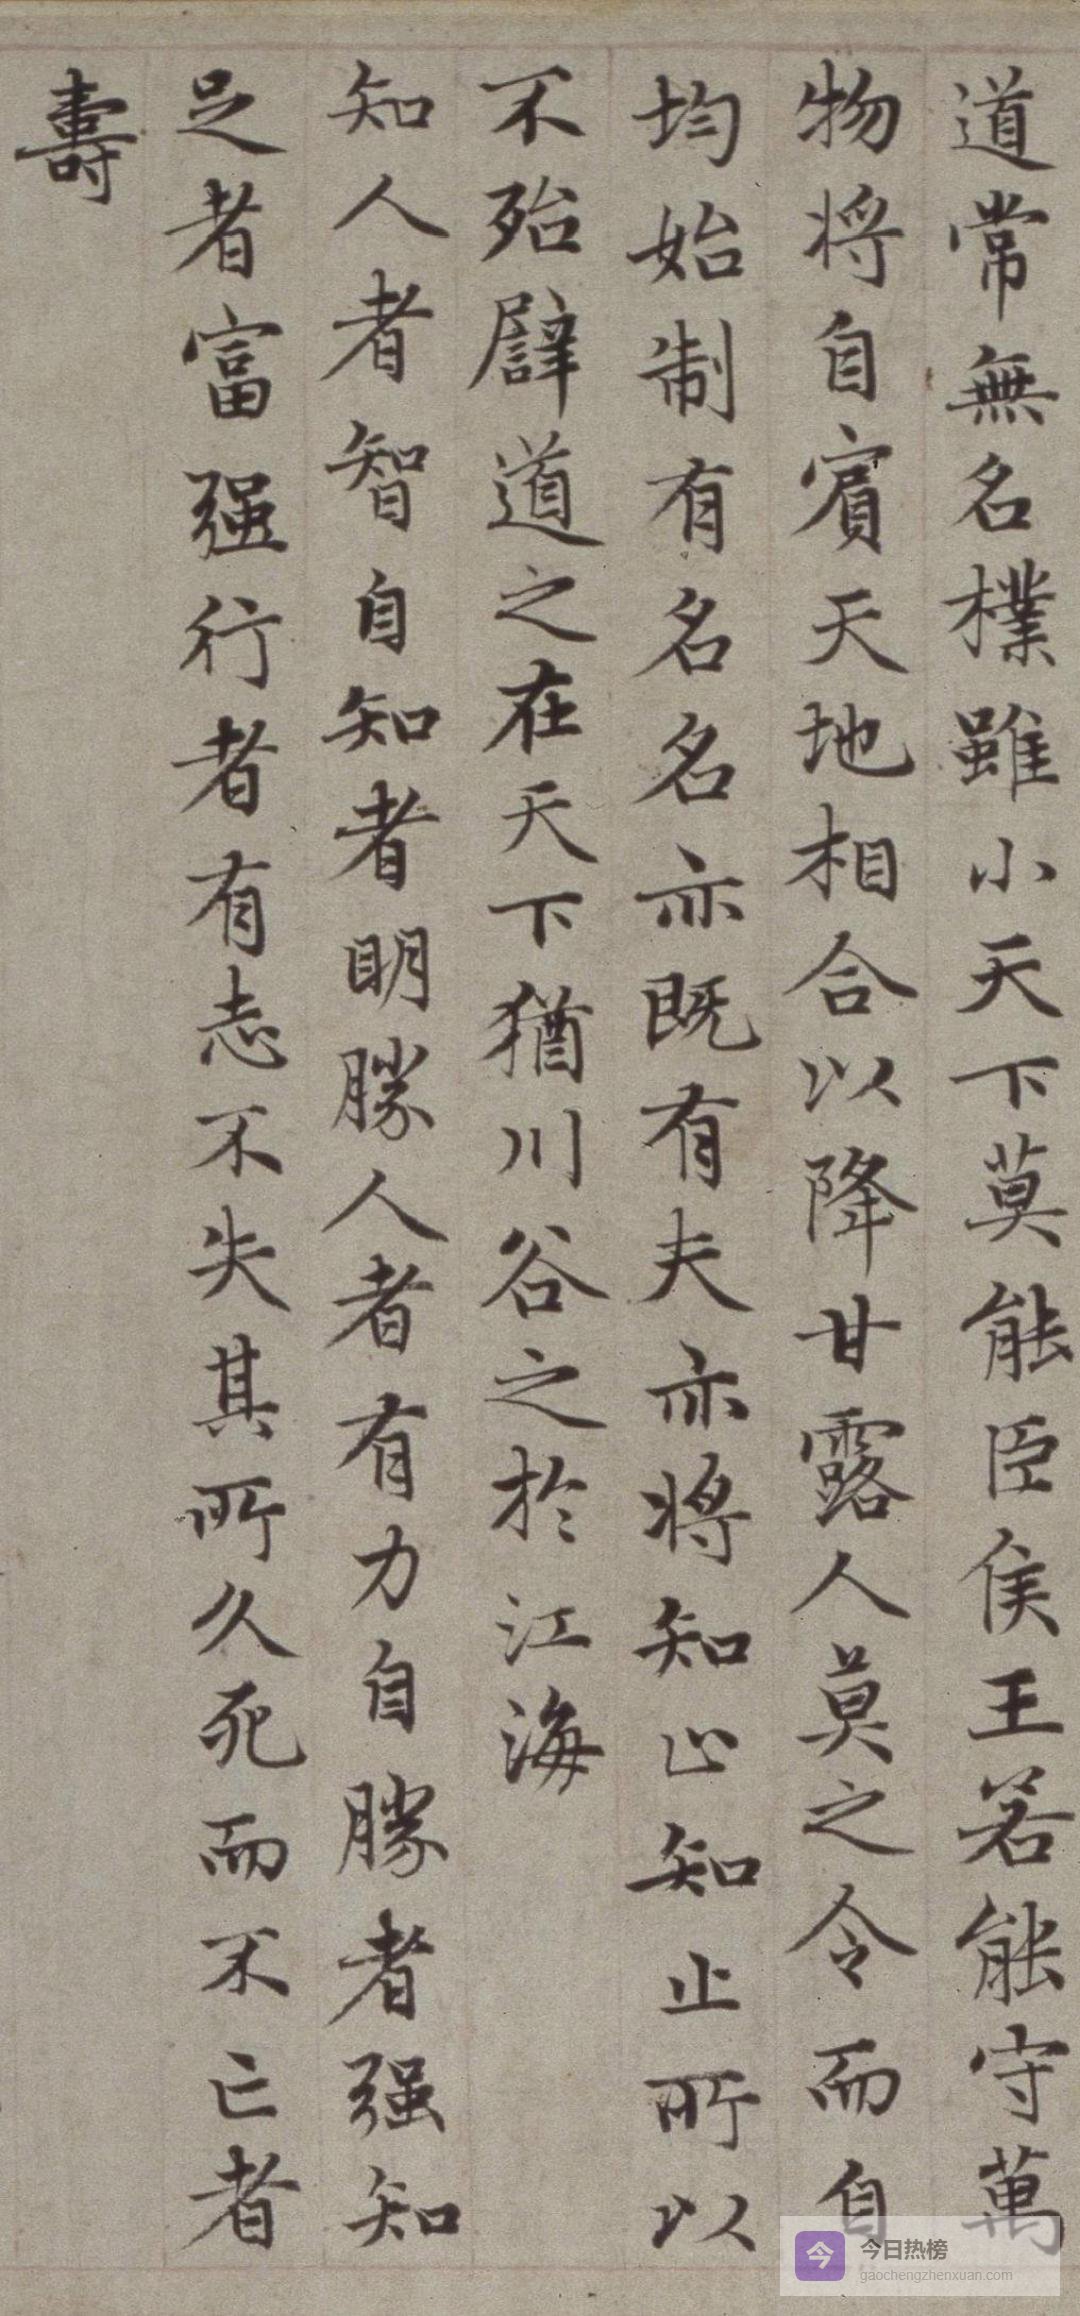 道常無名樸雖小天下莫能臣侯王若能守萬
物将自賓天地相合以降甘露人莫之令而自
均始制有名名亦既有夫亦將知止知止所以
不殆譬道之在天下猶川谷之於江海
知人者智自知者明勝人者有力自勝者强知
足者富强行者有志不失其所久死而不亡者
壽
今 今日热榜
gaochengzhenxuan.com